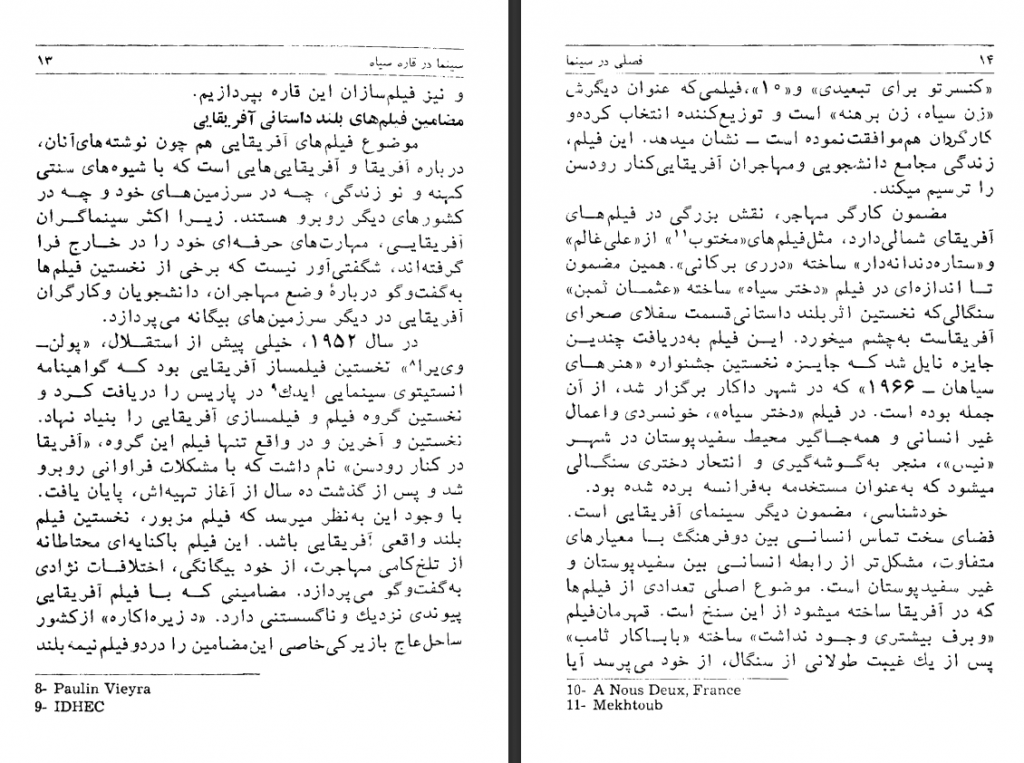 سینما در قاره سیاه ۱۳
و نیز فیلم‌سازان این قاره بپردازیم.
مضامین فیلم‌های بلند داستانی آفریقایی
موضوع فیلم‌های آفریقایی هم چون نوشته‌های‌آنان،
درباره آفریقا و آفریقایی‌هایی است که با شیوه‌های سنتی
کهنه و نو زندگی، چـه در سرزمین‌هـای خود و چـه در
کشورهای دیگر روبرو هستند. زیـرا اکثر سینماگـران
آفریقایـی، مهارت‌های حرفـه‌ای خود را در خـارج فرا
گرفته‌اند، شگفتی‌آور نیست که برخی از نخستین فیلم‌ها
به‌گفت‌وگو دربارهٔ وضع مهاجران، دانشجویان وکارگران
آفریقایی در دیگر سرزمین‌های بیگانه می‌پردازد.
در سال ۱۹۵۲، خیلی پیش از استقـلال، «پولن‌ـ
وی‌یرا۸» نخستین فیلمساز آفریقایی بود کـه گواهینامه
انستیتوی سینمایی ایدك۹ در پاریس را دریافت کـرد و
نخستین گروه فیلم و فیلمسازی آفریقایی را بنیاد نهاد.
نخستین و آخرین و در واقع تنهـا فیلم این گروه، «آفریقا
در کنار رودسن» نام داشت که با مشکلات فراوانی روبرو
شد و پس از گذشت ده سال از آغاز تهیه‌اش، پایان یافت.
با وجود این به‌نظر میرسد که فیلم مزبور، نخستین فیلم
بلند واقعی آفریقایی باشد. این فیلم باکنایه‌ای محتاطانه
از تلخ‌کامی مهاجرت، از خود بیگانگی، اختلافـات نژادی
به‌گفت‌وگو می‌پردازد. مضامینی کـه بـا فیلم آفریقایی
پیوندی نزدیك و ناگسستنی دارد. «دزیره‌اکاره» ازکشور
ساحل‌عاج بازیرکی‌خاصی این‌مضامین را دردوفیلم‌نیمه‌بلند
8- Paulin Vieyra
9- IDHEC
۱۴ فصلی در سینما
«کنسرتو برای تبعیدی» و«۱۰»،فیلمی‌که عنوان دیگرش
«زن سیاه، زن برهنه» است و توزیع‌کننده انتخاب کرده‌و
کارگردان هم‌موافقت‌نموده است ــ نشان میدهد. این فیلم،
زندگی مجامع دانشجویی‌ومهاجران آفریقایی‌کنار رودسن
را ترسیم میکند.
مضمون کارگر مهاجر، نقش بزرگی در فیلم‌هـای
آفریقای شمالی‌دارد، مثل‌فیلم‌های«مختوب۱۱» از«علی‌غالم»
و«ستاره‌دندانه‌دار» ساخته «درری برکانی».همین مضمون
تـا اندازه‌ای در فیلم «دختر سیاه» ساخته «عثمـان ثمبن»
سنگالی‌که نخستین اثربلند داستانی‌قسمت سفلای صحرای
آفریقاست به‌چشم میخورد. ایـن فیلم به‌دریافت چندیـن
جایزه نایل شد کـه جایـزه نخستین جشنواره «هنرهـای
سیاهان ــ ۱۹۶۶» که در شهر داکار برگزار شد، از آن
جمله بوده است. در فیلم «دختر سیاه»، خونسردی‌واعمال
غیر انسانی و همه‌جـاگیر محیط سفیدپوستان در شهـر
«نیس»، منجر به‌گـوشه‌گیری و انتحار دختری سنگـالی
میشود که به‌عنوان مستخدمه به‌فرانسه برده شده بود.
خودشناسی، مضمون دیگر سینمای آفریقایی است.
فضای سخت تماس انسانـی بین دوفرهنگ بـا معیارهای
متفاوت، مشکل‌تر از رابطه انسانـی بین سفیدپوستان و
غیر سفیدپوستان است. موضوع اصلی تعدادی از فیلم‌ها
که در آفریقا ساخته میشود از این سنخ است. قهرمان‌فیلم
«وبرف بیشتری وجـود نداشت» ساخته «بابـاکار ثامب»
پس از یك غیبت طولانی از سنگال، از خود می‌پرسد آیا
10- A Nous Deux, France
11- Mekhtoub